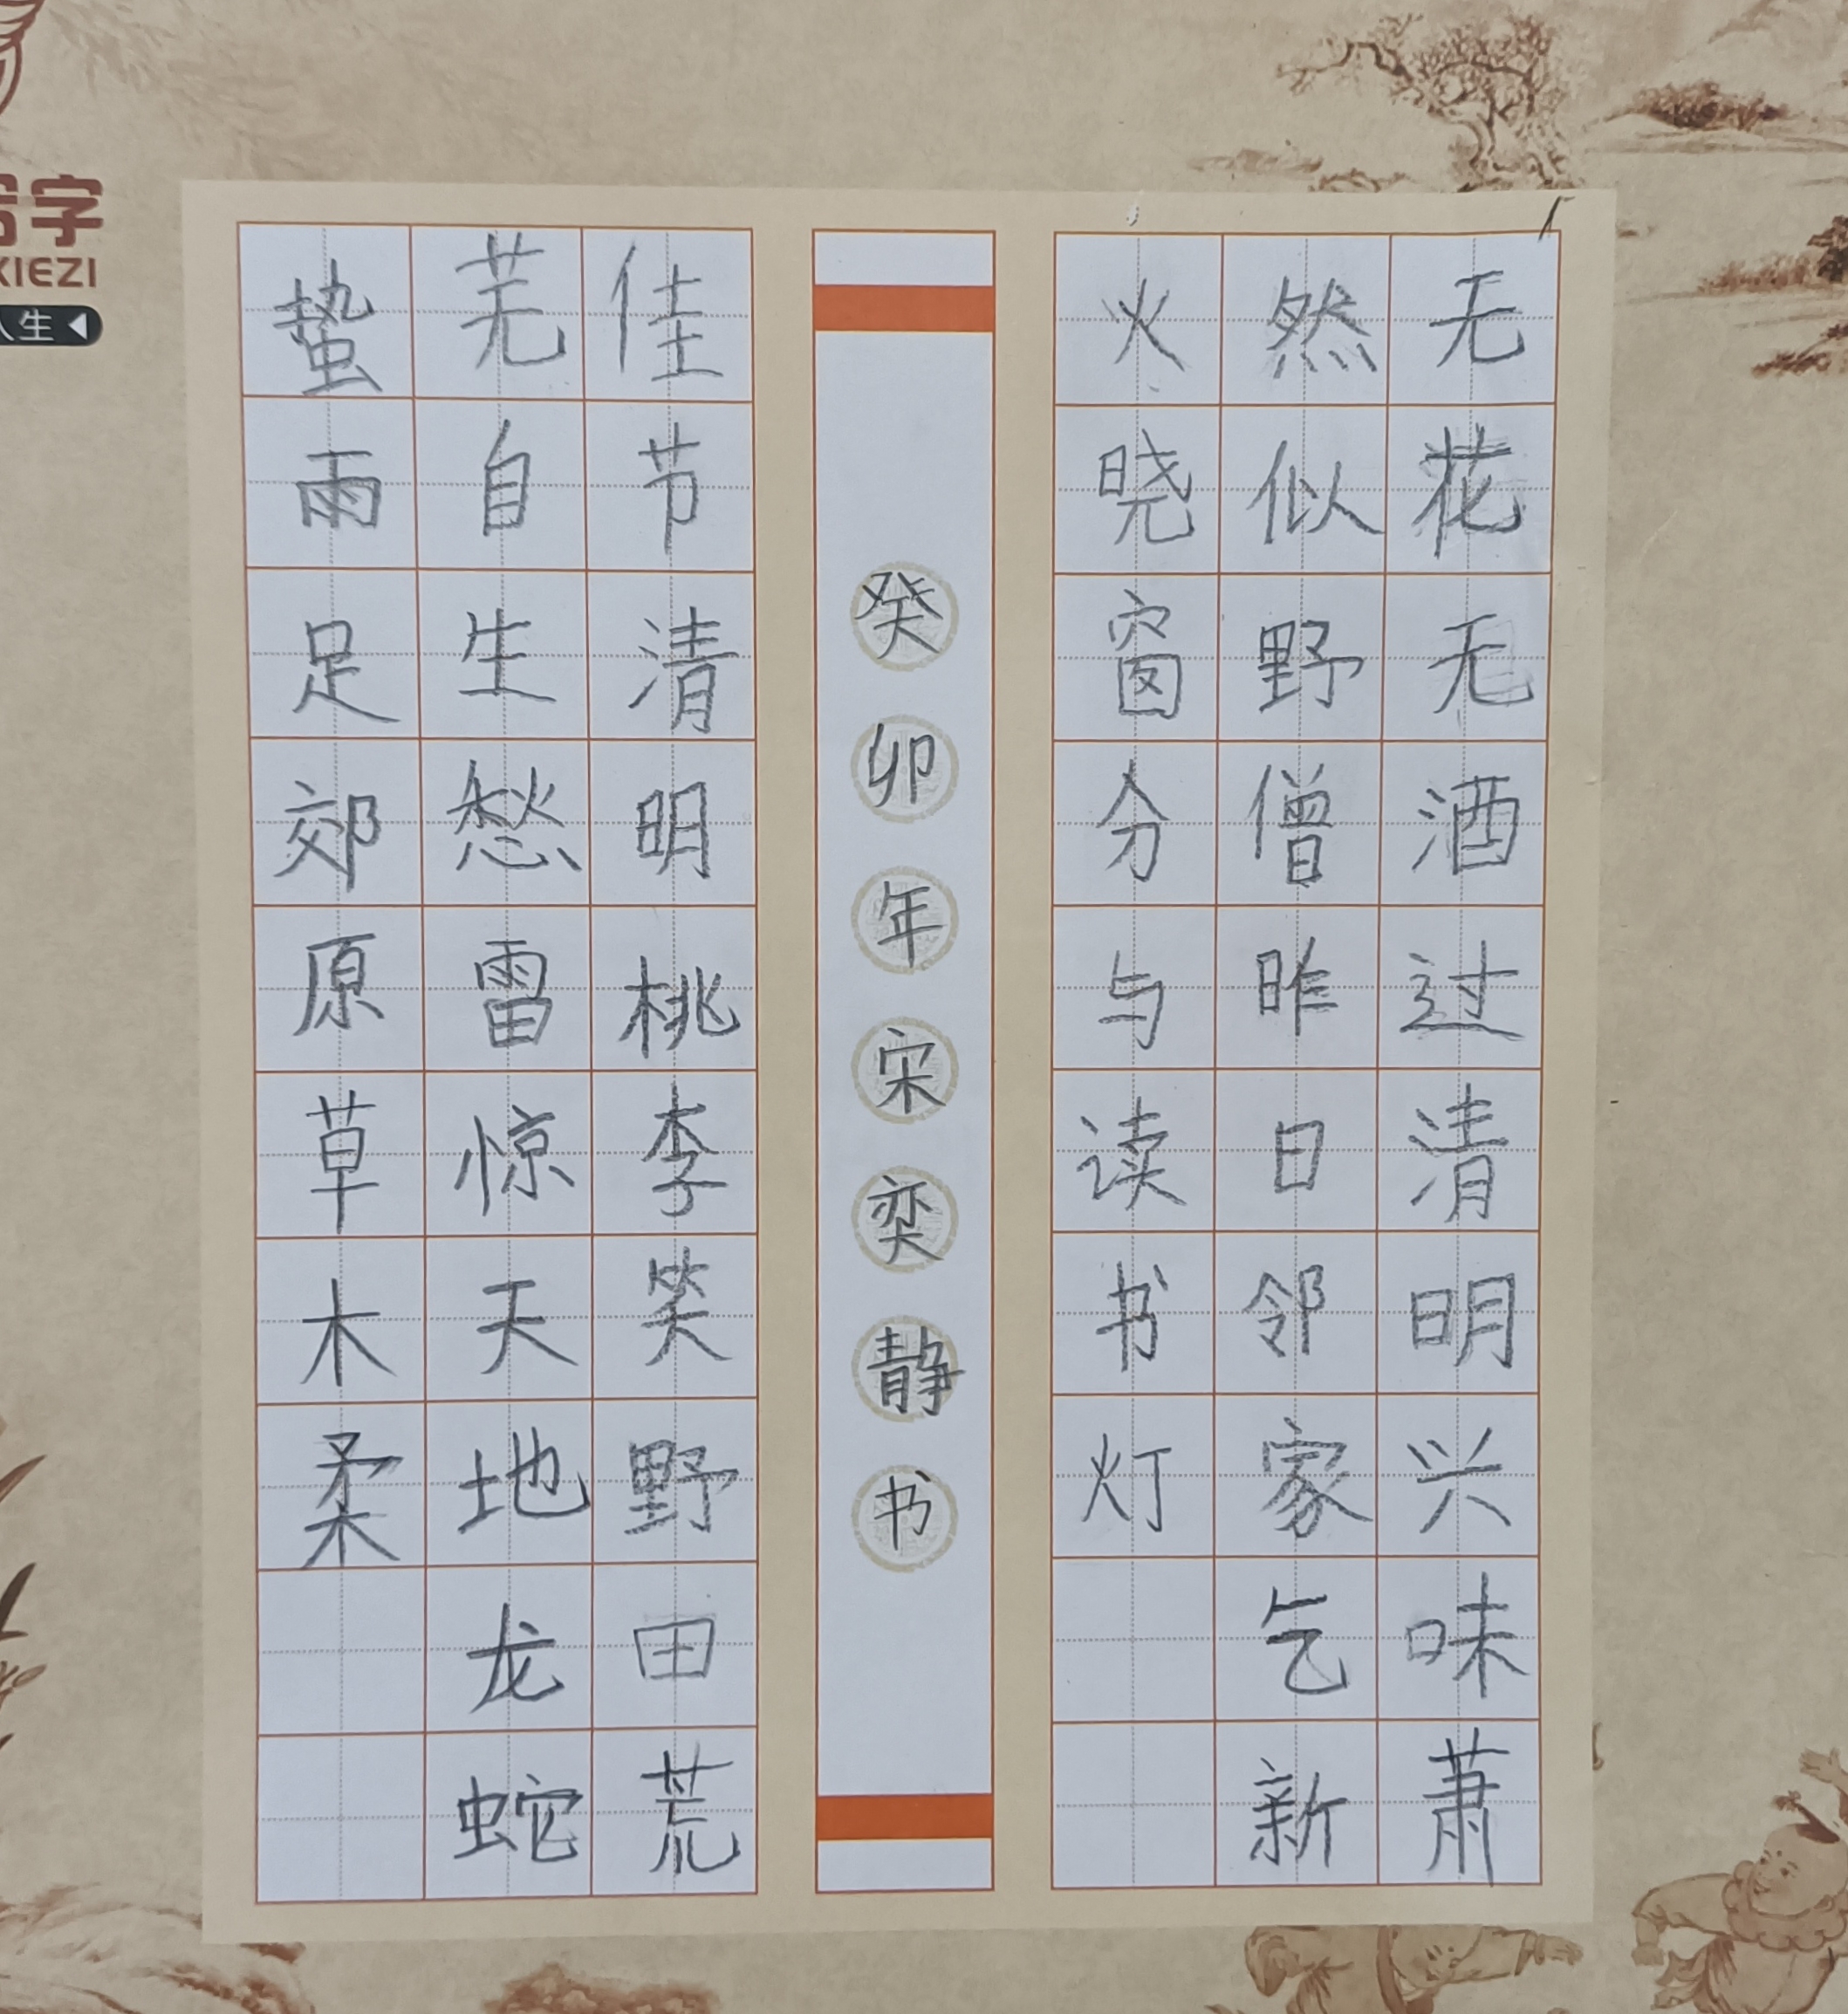 无花无酒过清明兴味萧
然似野僧昨日邻家乞新
火晓窗分与读书灯
癸卯年宋奕静书
佳节清明桃李笑野田荒
芜自生愁雷惊天地龙蛇
蛰雨足郊原草木柔
字
XIEZI
人生